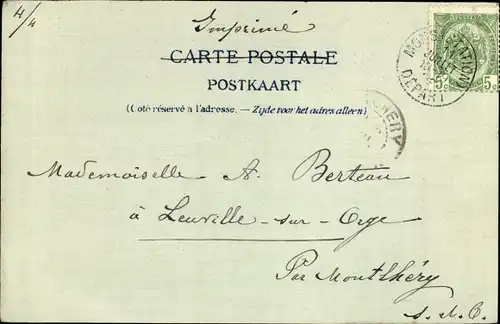 4/4
Imprimé
CARTE POSTALE
POSTKAART
(Coté réservé a l'adresse. — Zijde voor het adres alleen)
DÉPART
5c 5c
Mademoiselle A. Berteau
à Leuville-sur-Orge
Par Montlhéry
S. & O.